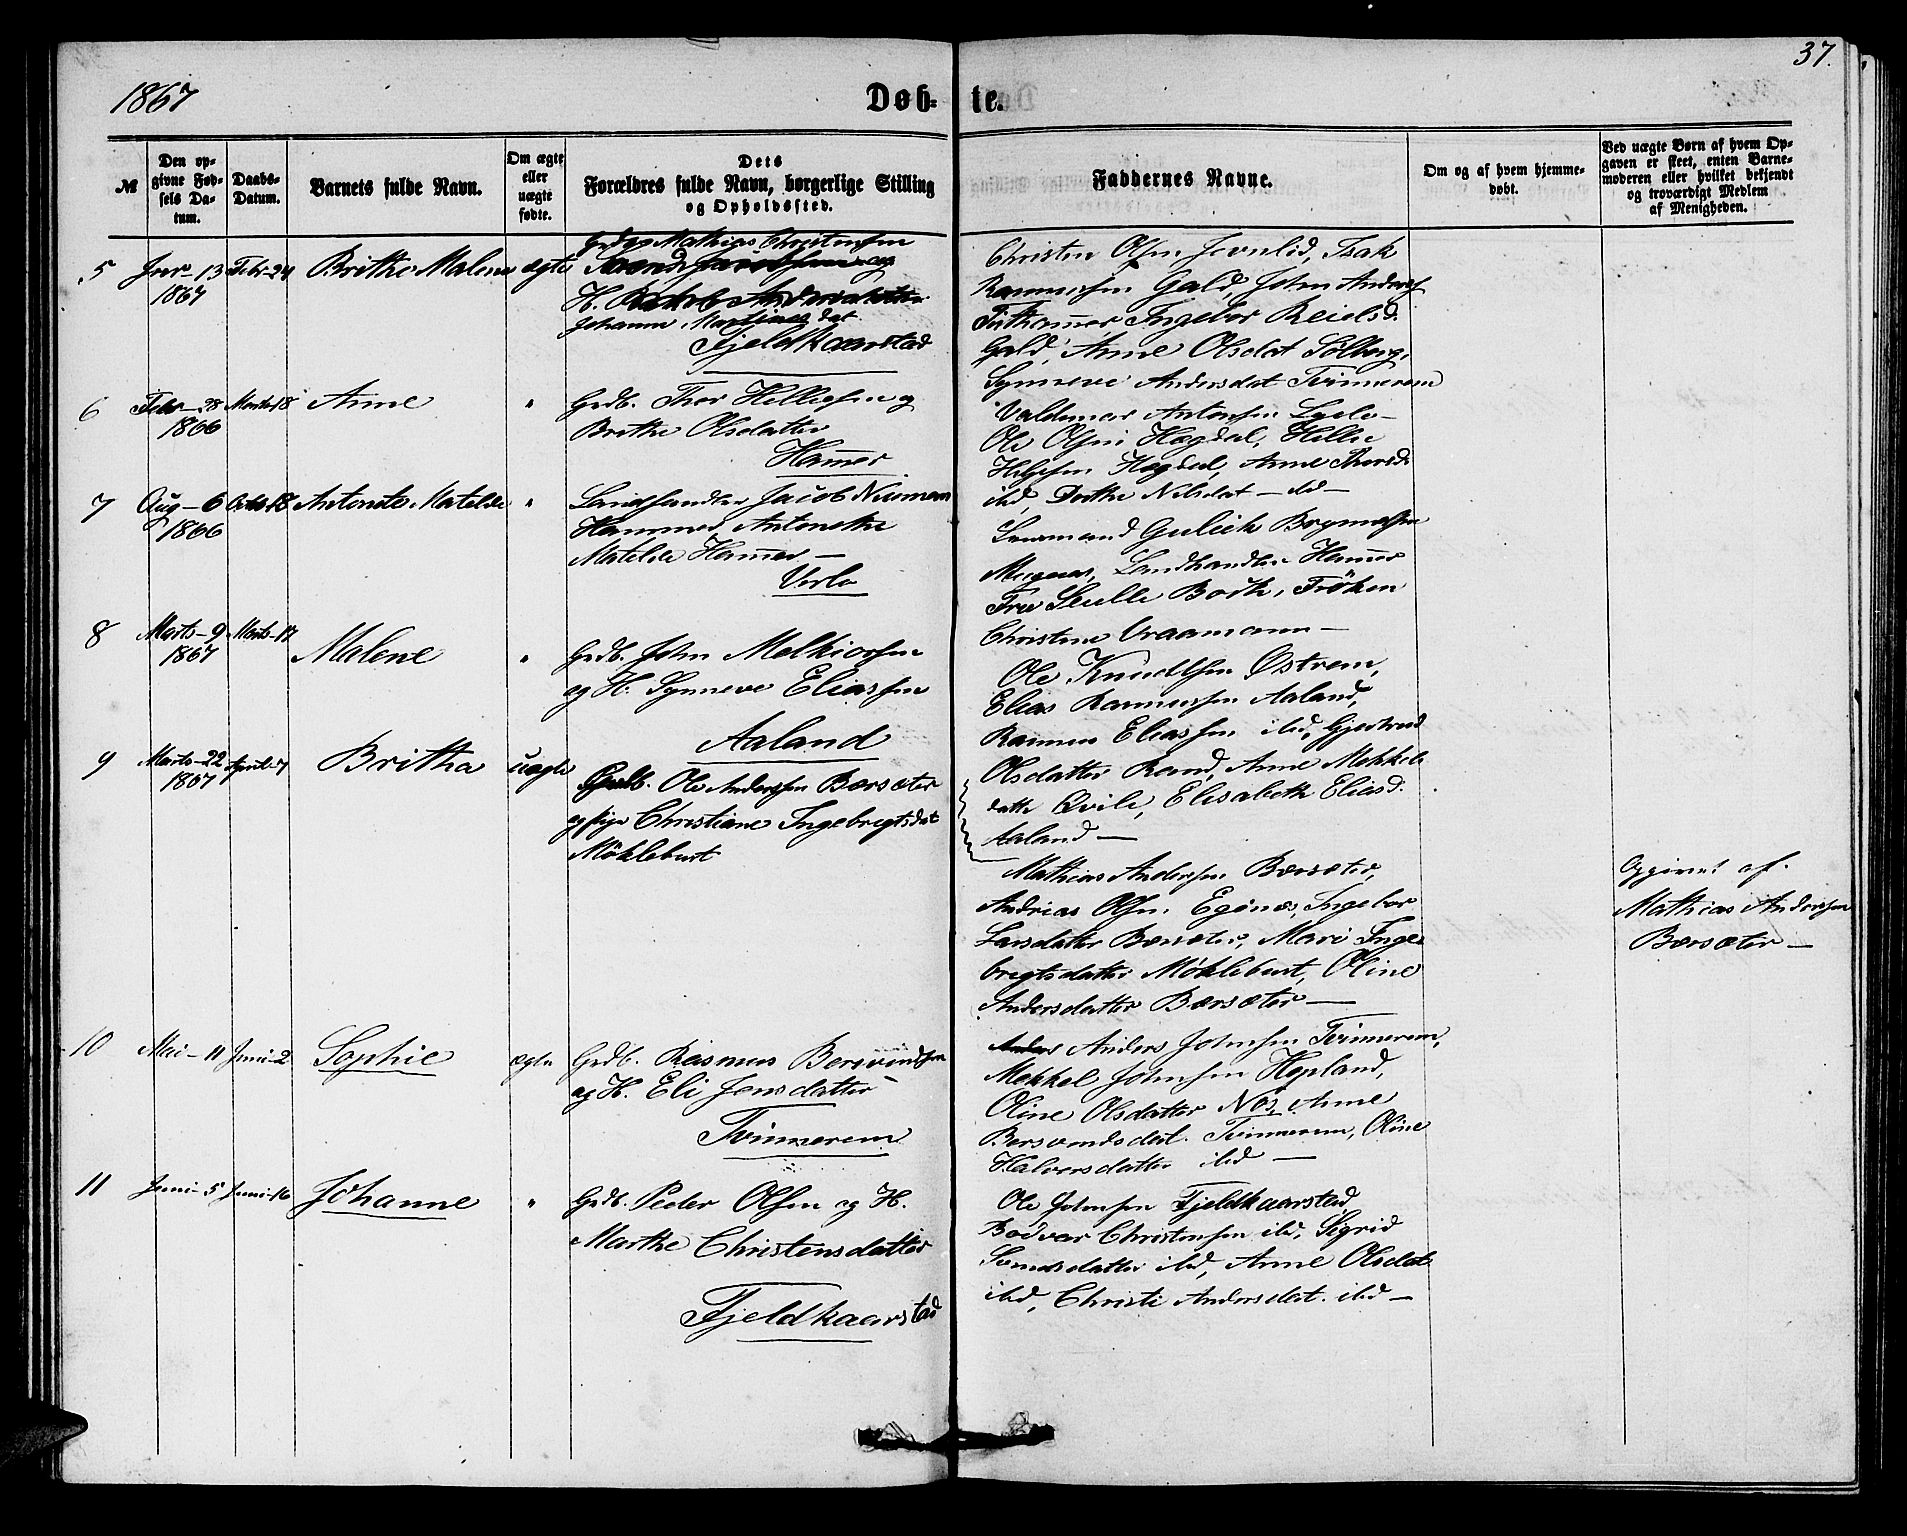 1867
Døb-
te.
37.
№
Den op-
givne Fød-
sels Da-
tum.
Daabs-
Datum.
Barnets fulde Navn.
Om ægte
eller
uægte
fødte.
Dets
Forældres fulde Navn, borgerlige Stilling
og Opholdssted.
Faddernes Navne.
Om og af hvem hjemme-
døbt.
Ved uægte Børn af hvem Op-
gaven er skeet, enten Barne-
moderen eller hvilket bekjendt
og troværdigt Medlem
af Menigheden.
5 Jnr-13 Febr-24 Brithe Malene ægte
1867
Mathias Christensen
H.
Johanne Martines dat
Fjeldkaarstad
Christen Olsen Isak
Rasmussen Gald, John Anders
Ingebor Reielsd.
Gald, Anne Olsdat Solberg,
Synneve Andersdat Tvinnerem
6 Febr-28 Marts-18 Anne "
1866
Grdb. Thor Hellesen og
Brithe Olsdatter
Hammer
Valdemar Antonsen
Ole Olsen Hægdal, Helle
Helgesen Hægdal, Anne Thorsd.
ibd, Dorthe Nilsdat - ibd -
7 Aug-6 Octb-18 Antonete Matelde "
1866
Landhandler Jacob Neumann
Hammer, Antonethe
Matilde Hammer -
Lensmand Gulick Brynnesen
Landhandler Hammer
Fru Both, Frøken
Christine Vraamann -
8 Marts-9 Marts-17 Malene "
1867
Grdb. John Melkiorsen
og H. Synneve Eliassen
Aaland
Ole Knudtsen Østrem,
Elias Rasmussen Aaland,
Rasmus Eliassen ibd, Gjertrud
Olsdatter Rand, Anne Mekkels
datter Qvile, Elisabeth Eliasd.
Aaland -
9 Marts-22 April-7 Britha uægte
1867
Grdb. Ole Anderssen Bærsæter
og pige Christiane Ingebregtsdat
Møklebust
Mathias Anderssen Bærsæter,
Andrias Olsen Egenæs, Ingebor
Larsdatter Bærsæter, Mari Inge-
bregtsdatter Møklebust, Oline
Andersdatter Bærsæter -
Opgivet af
Mathias Anderssen
Bærsæter -
10 Mai-11 Juni-2 Sophie ægte
Grdb. Rasmus Bersvendsen
og H. Eli Jensdatter
Tvinnerem
Anders Anders Johnsen Tvinnerem,
Mekkel Johnsen Hopland,
Oline Olsdatter Nos, Anne
Bersvendsdat. Tvinnerem, Oline
Halvorsdatter ibd -
11 Juni-5 Juni-16 Johanne "
Grdb. Peder Olsen og H.
Marthe Christensdatter
Fjeldkaarstad
Ole Johnsen Fjeldkaarstad
Bodvar Christensen ibd, Sigrid
ibd, Anne Olsdat
ibd, Christi Andersdat. ibd -